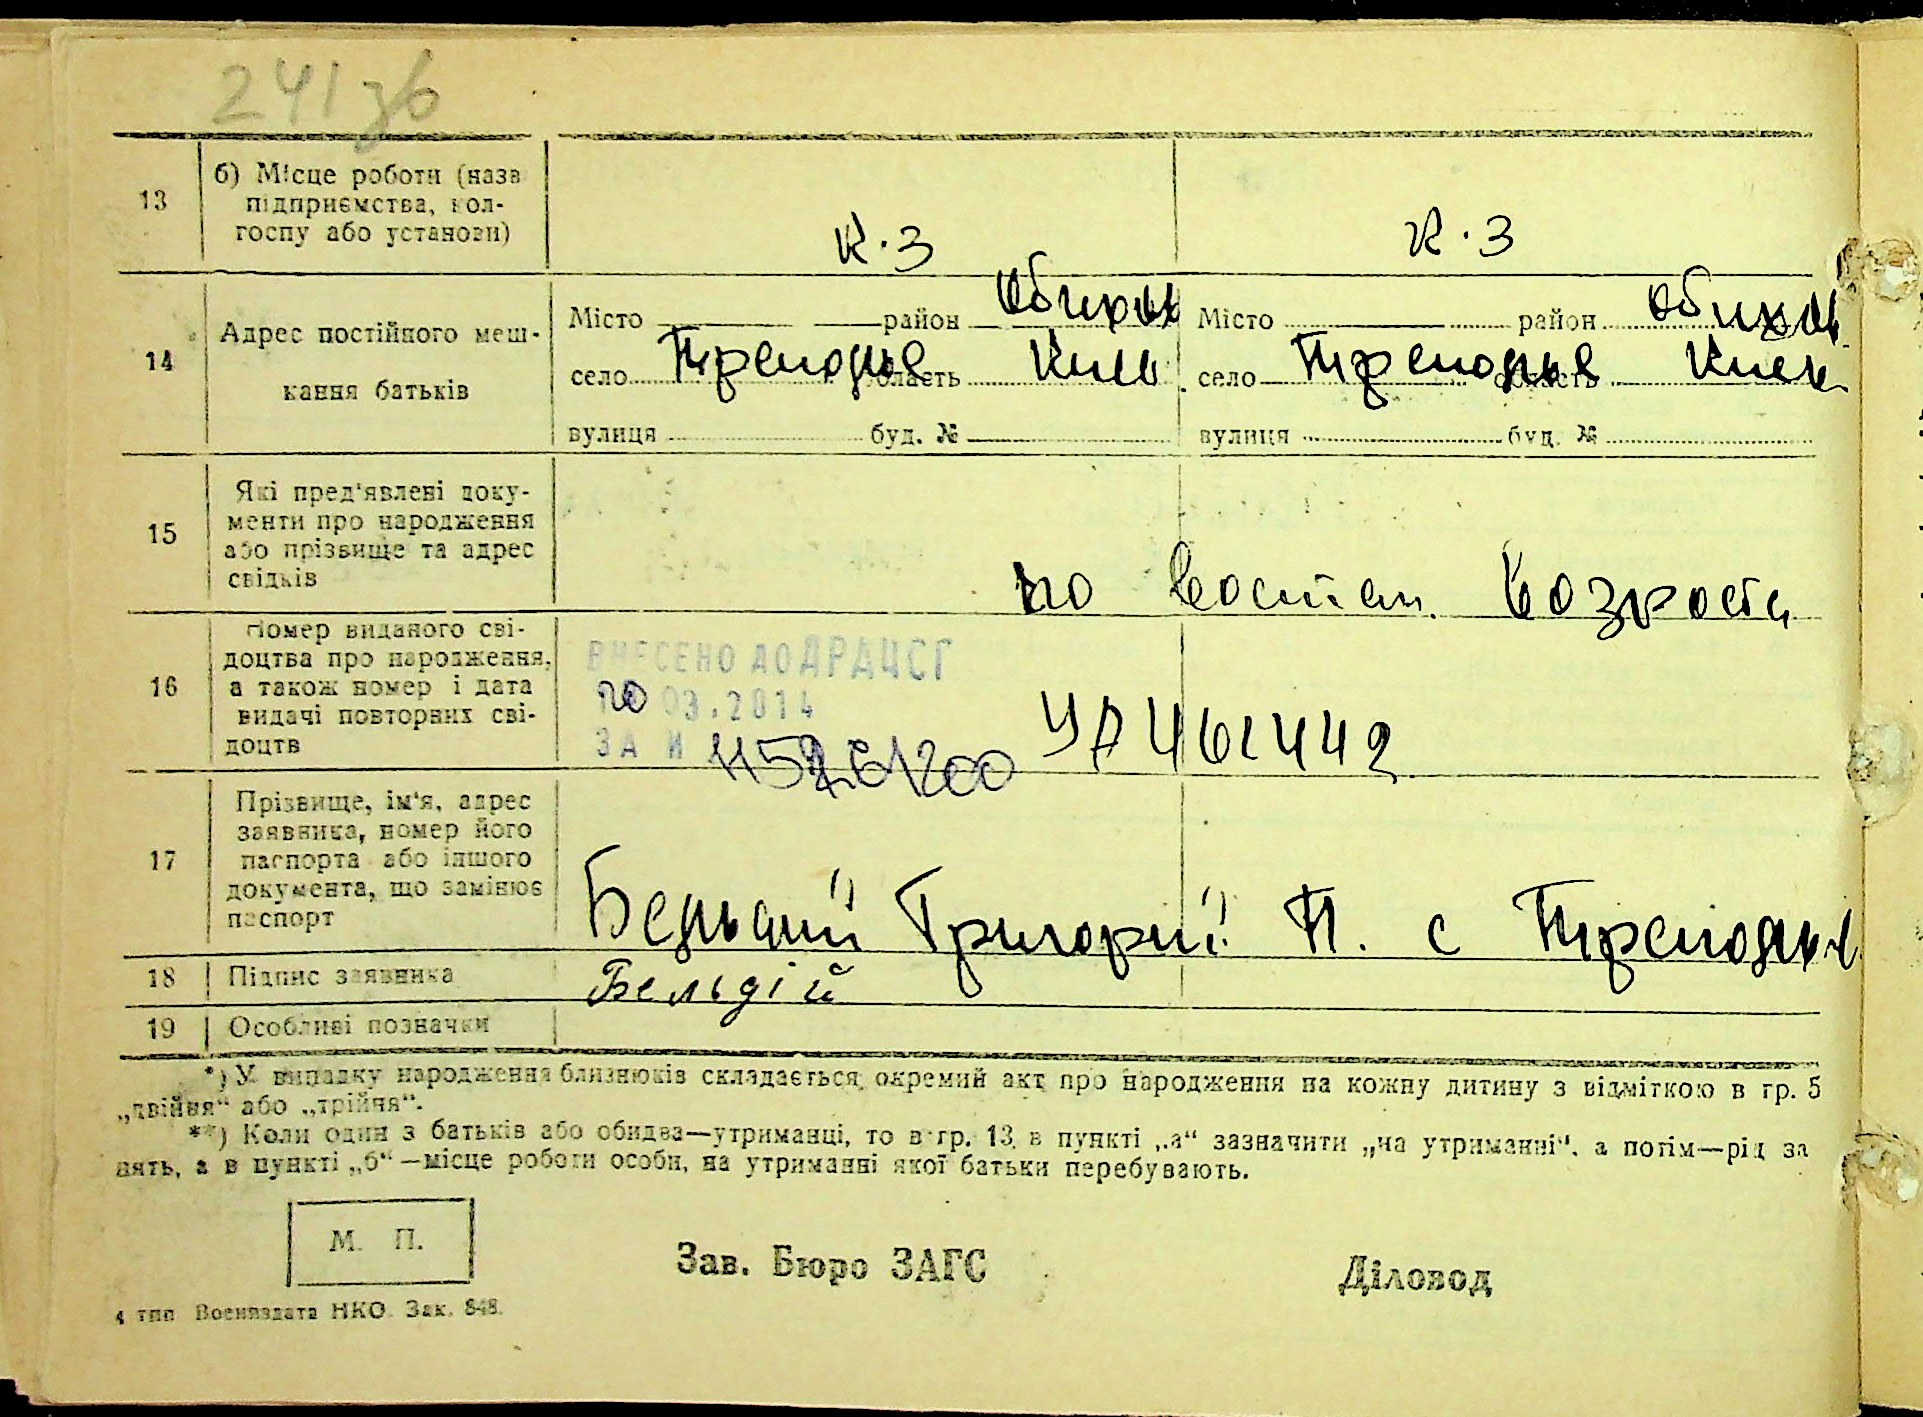 241 зв
13
б) Місце роботи (назв
підприємства, кол-
госпу або установи)
К.З
К.З
14
Адрес постійного меш-
кання батьків
Місто район Обихов
село Треподня область Київ
вулиця буд. №
Місто район Обихов
село Треподня область Киев
вулиця буд. №
15
Які пред'явлені доку-
менти про народження
або прізвище та адрес
свідків
по востан. возроста
16
Номер виданого сві-
доцтва про народження,
а також номер і дата
видачі повторних сві-
доцтв
ВНЕСЕНО ДО ДРАЦСГ
03.2014
ЗА И
УА 461442
17
Прізвище, ім'я, адрес
заявника, номер його
паспорта або іншого
документа, що замінює
паспорт
Григорий П. с Треподня
18
Підпис заявника
Бельдій
19
Особливі позначки
*) У випадку народження близнюків складається окремий акт про народження на кожну дитину з відміткою в гр. 5
„двійня“ або „трійня“.
**) Коли один з батьків або обидва—утриманці, то в гр. 13, в пункті „а“ зазначити „на утриманні“, а потім—рід за
нять, а в пункті „б“—місце роботи особи, на утриманні якої батьки перебувають.
М. П.
Зав. Бюро ЗАГС
Діловод
4 тип Воениздата НКО. Зак. 848.